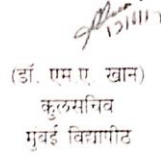 (डॉ. एम.ए. खान)
कुलसचिव
मुंबई विद्यापीठ